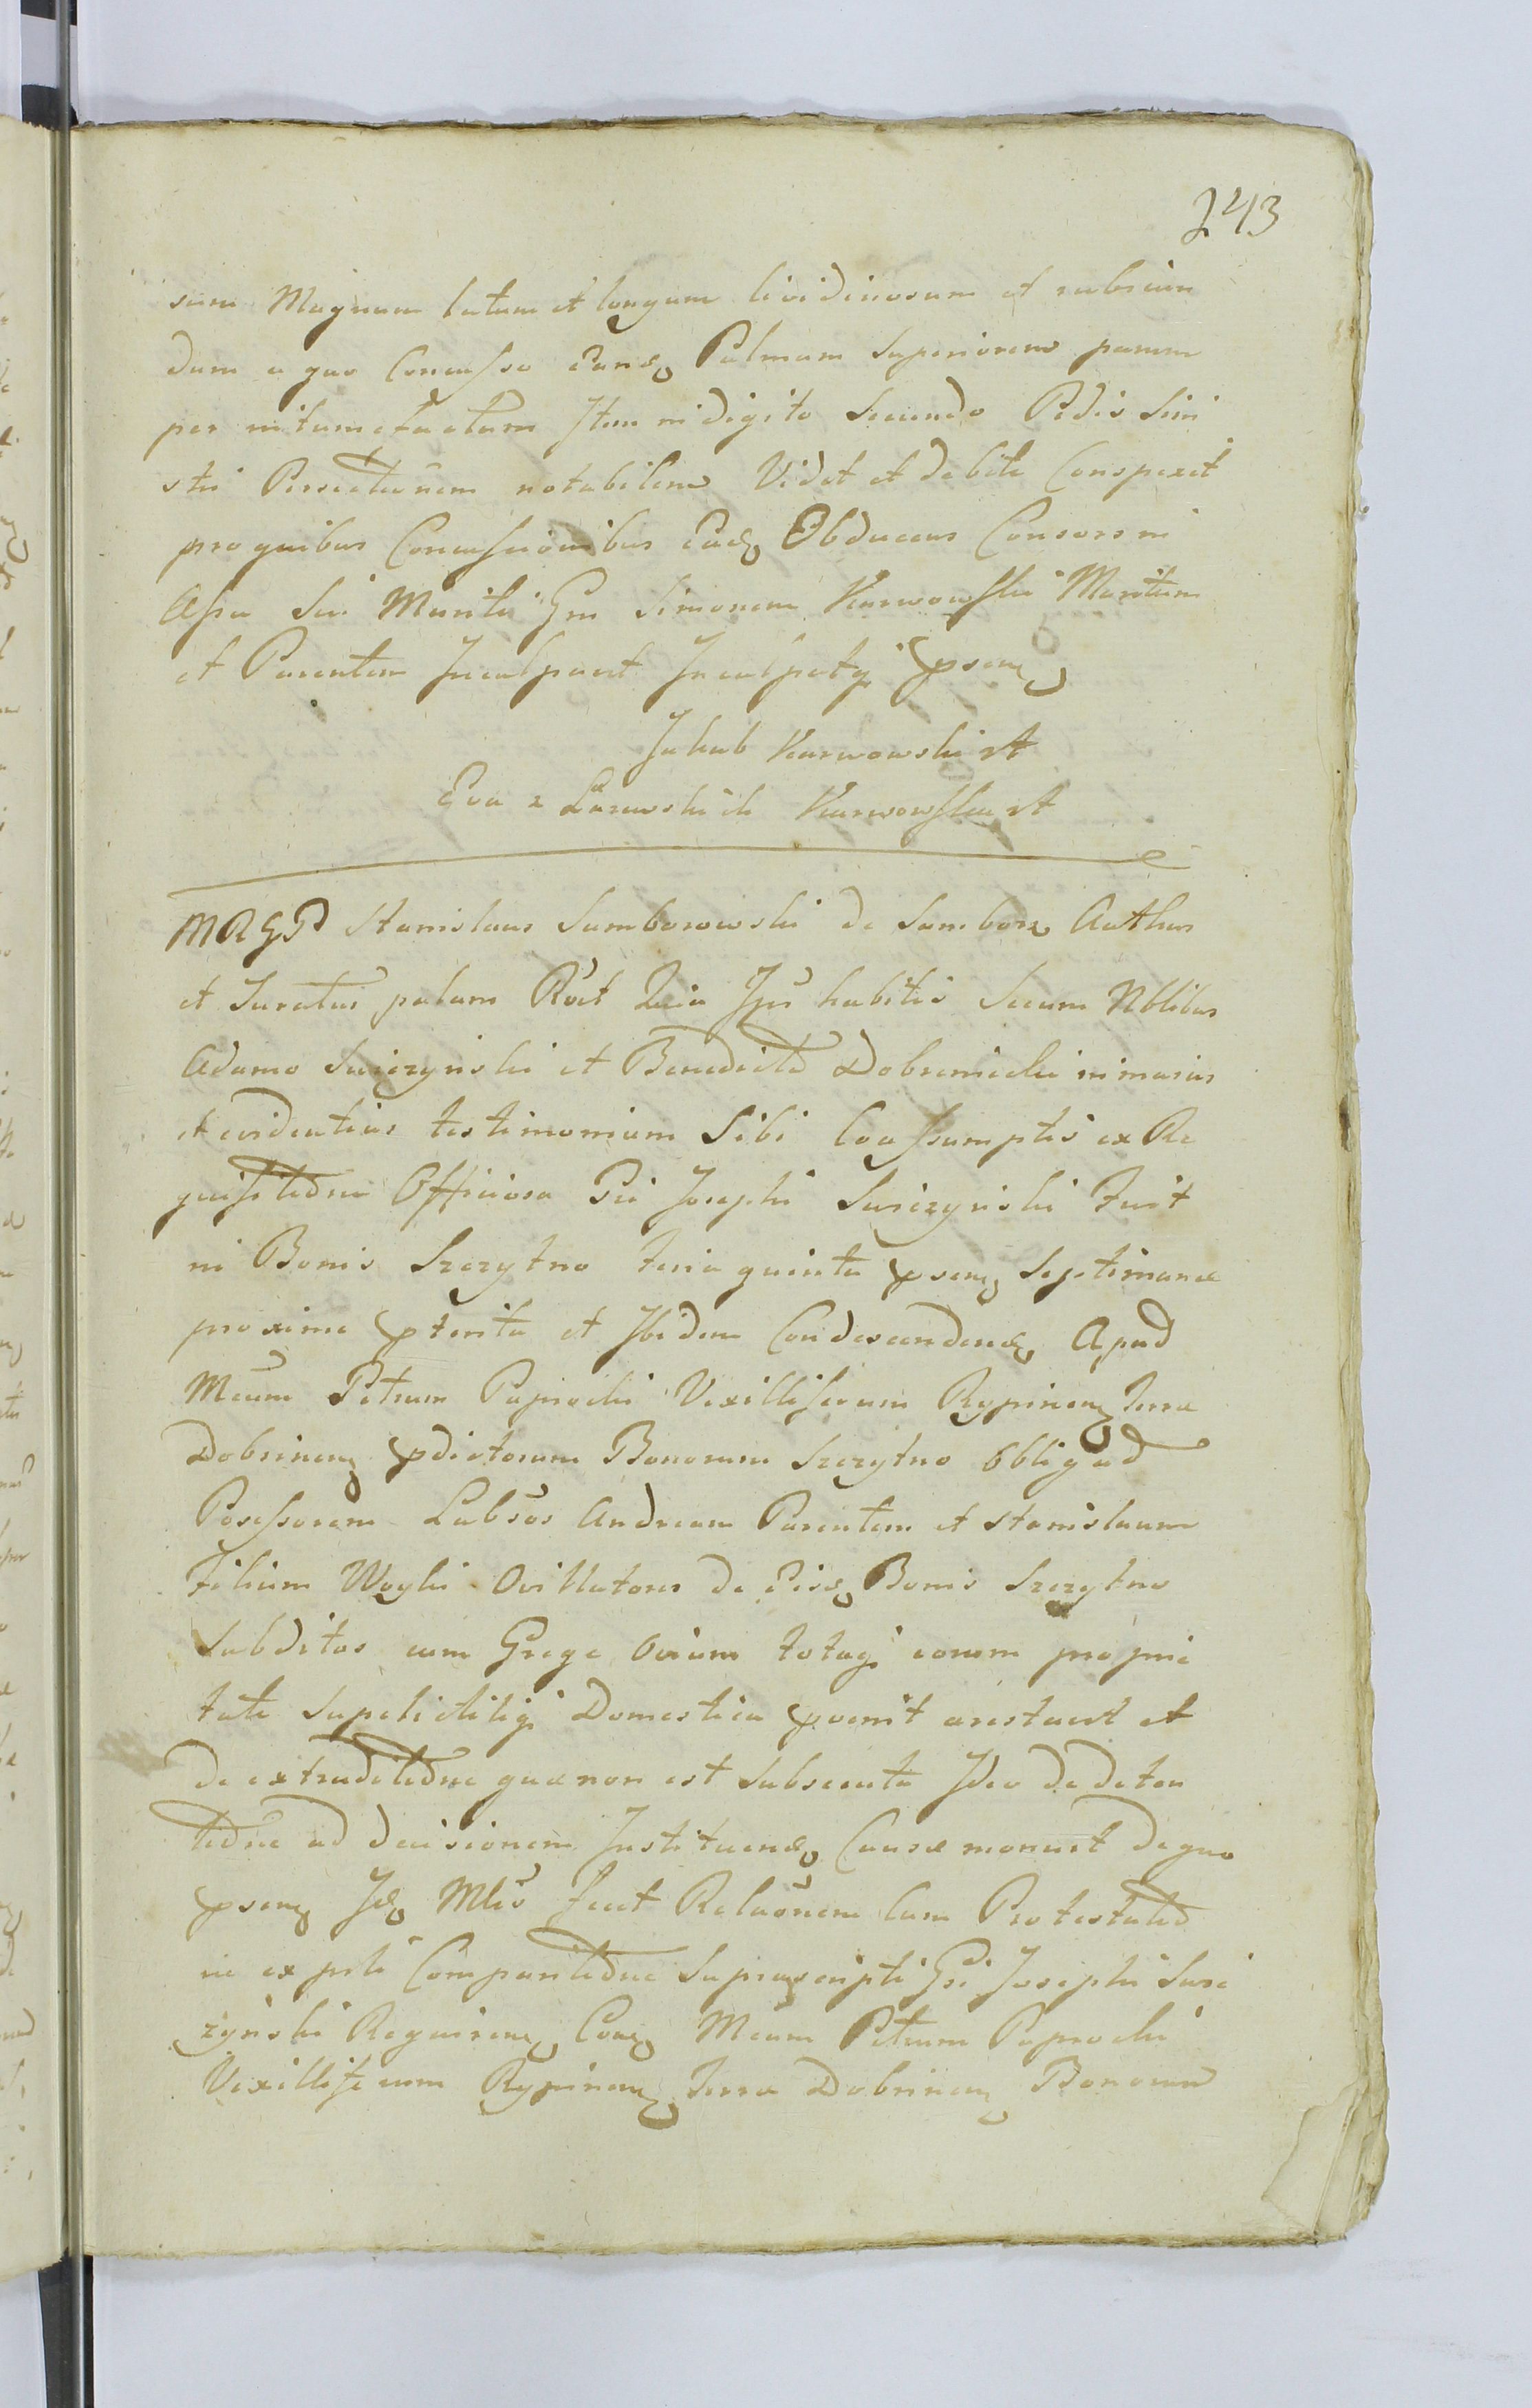 243
sum Magnum latum et longum lividinosum et rubicun
dum a quo Concusso eand Palmam Superiorem parum
per intumefactam Item in digito Secundo Pedis Sini
stri Persectionem notabilem Vidit et debite Conspexit
pro quibus Concussionibus Ead Obducens Consors in
Assa Sui Mariti Gm Simonem Karwowski Maritum
et Parentem Inculpavit Inculpatq psens
Jakub Karwowski st
Eva z Karwowska st
MRGP Stanislaus Samborowski de Sambory Authus
et Juratus palam Rcvit Quia Ipse habitis Secum Nblibus
Adamo Suriczynski et Benedicto Dobrenicki in maius
et evidentius testimonium Sibi Coassumptis ex Re
quisitione Officiosa Gsi Josephi Suriczynski Fuit
in Bonis Szczytno Feria quinta psens Septimanæ
proxime pterita et Ibidem Condescendens Apud
Mcum Petrum Paprocki Vexilliferum Rypinen Terræ
Dobrinen pdictorum Bonorum Szczytno Obligad
Possessorem Labsos Andream Parentem et Stanislaum
Filium Woyki Ovillatores de eisd Bonis Szczytno
Subditos cum Grege Ovium totaq eorum proprie
tate Supelictiliq Domestica pvenit arestavit et
de extraditione quæ non est Subsecuta Ideo de deten
tione ad decisionem Instituend Causæ monuit de quo
psens Id Mlis fecit Relaonem Cum Protestatio
ne ex prte Comparitione Suprascripti Gsi Josephi Suri
czynski Requiren Cons Mcum Petrum Paprocki
Vexilliferum Rypinen Terræ Dobrinen Bonorum